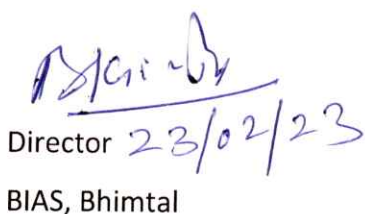 Director 23/02/23
BIAS, Bhimtal